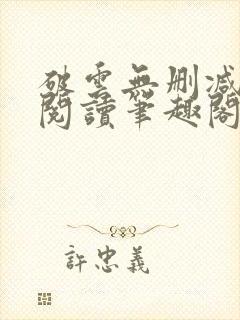 破雲無刪減
閱讀筆趣閣
許忠義